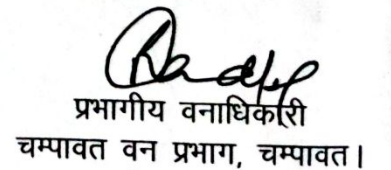 प्रभागीय वनाधिकारी
चम्पावत वन प्रभाग, चम्पावत।